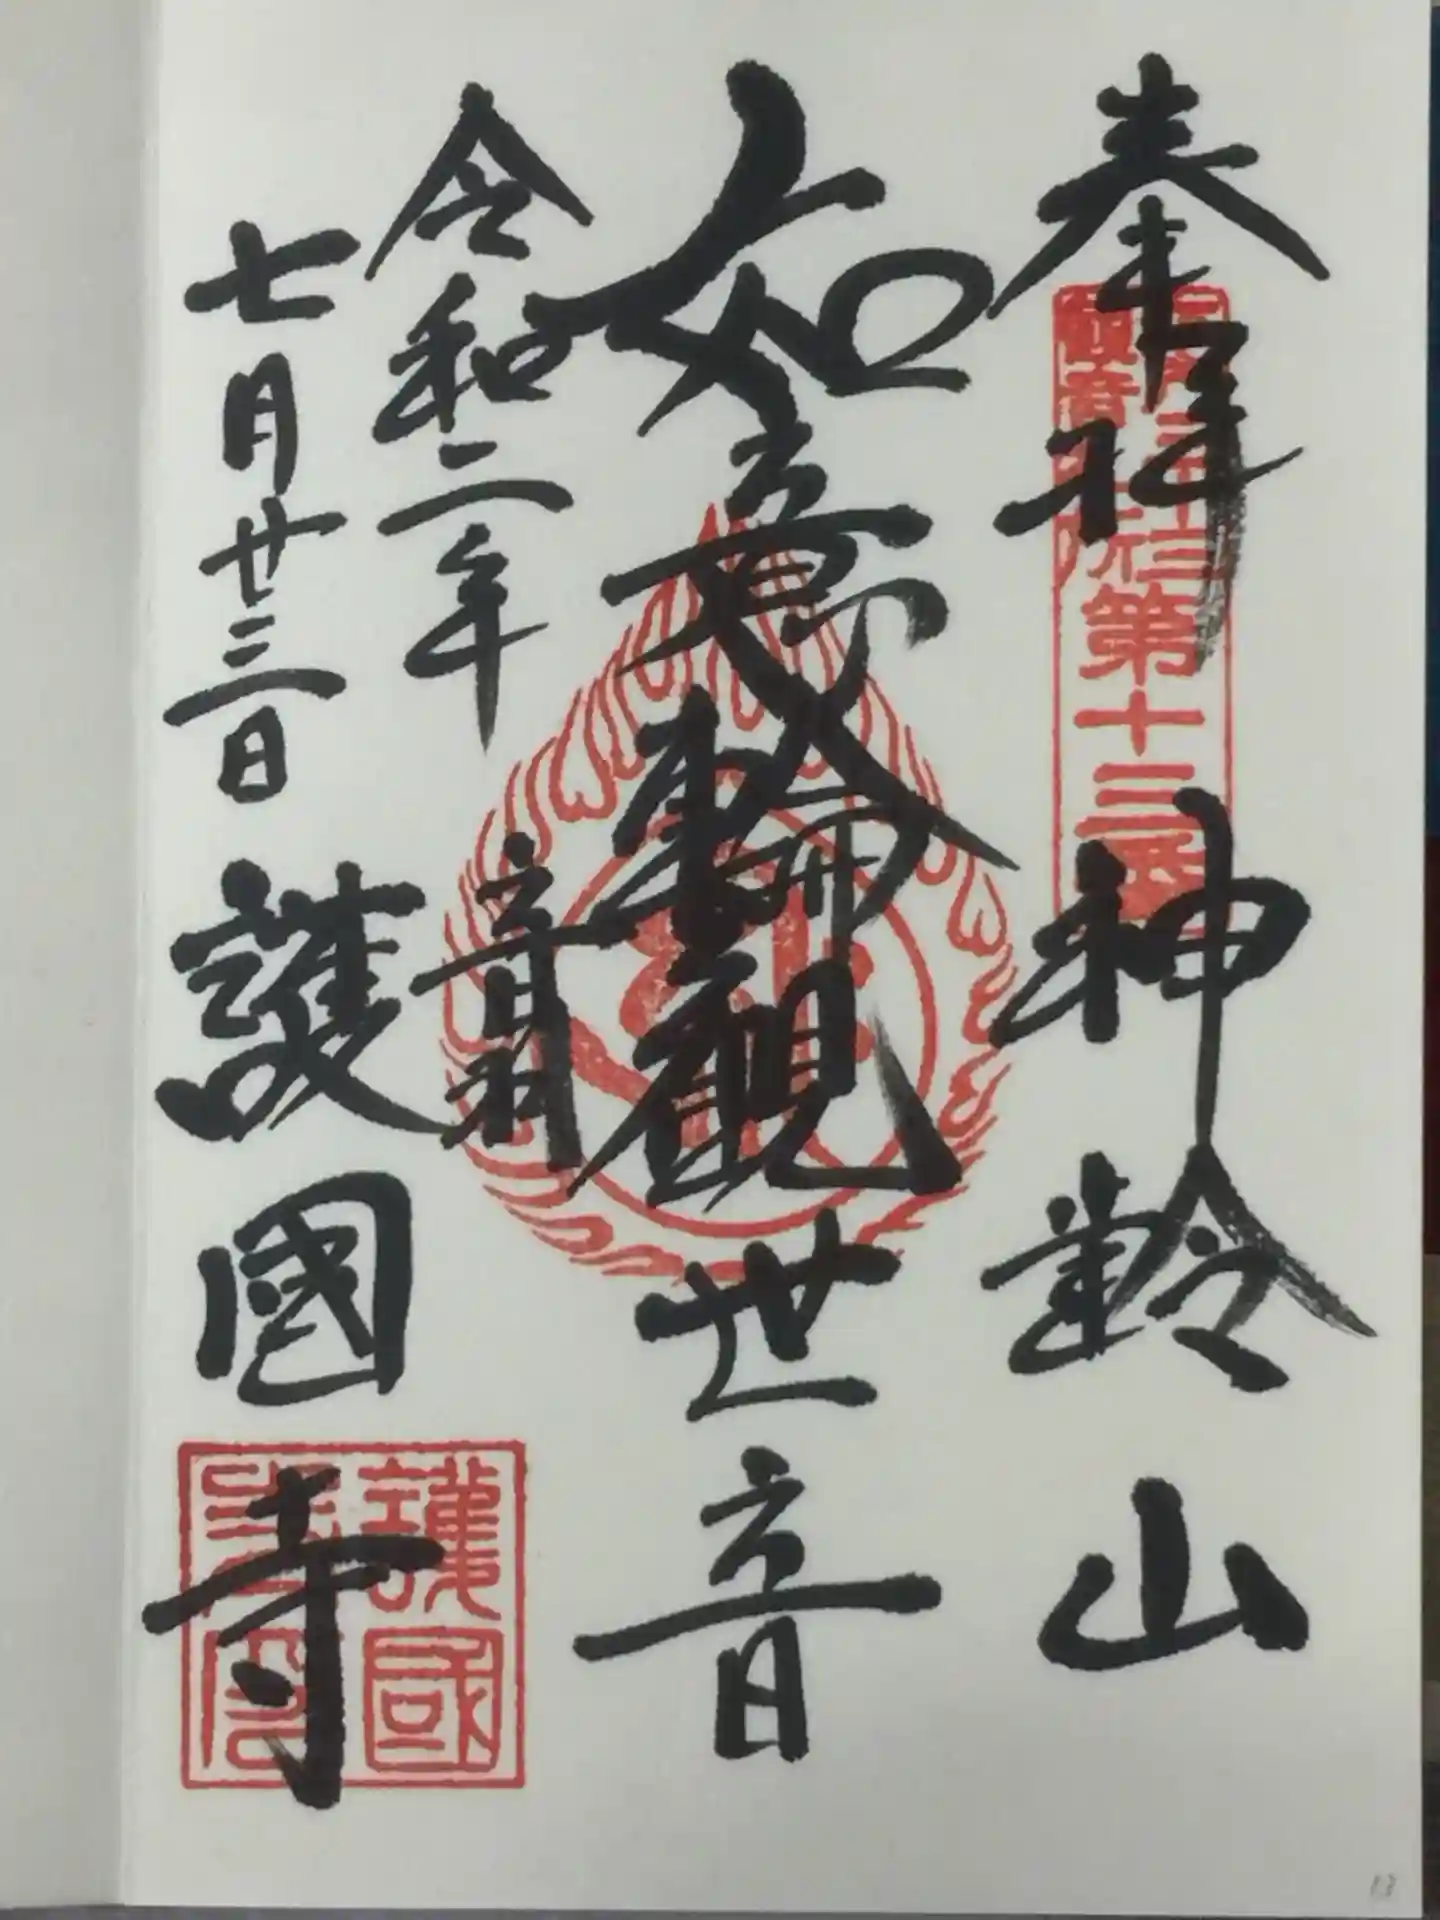 奉拝
神齢山
第十三番
如意輪觀世音
令和二年
七月廿三日
音羽
護國寺
護國
寺印
13